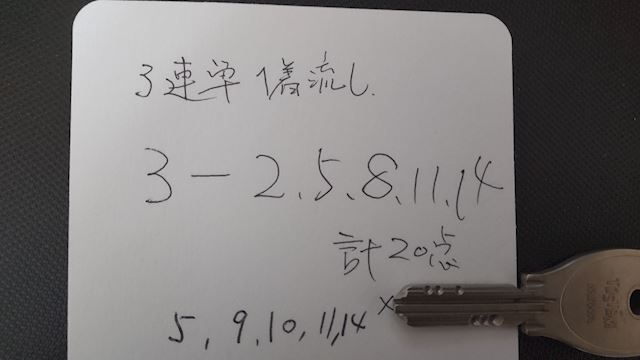 3連単 1着流し.
3ー2、5、8、11、14
計20点
5、9、10、11、14 ×